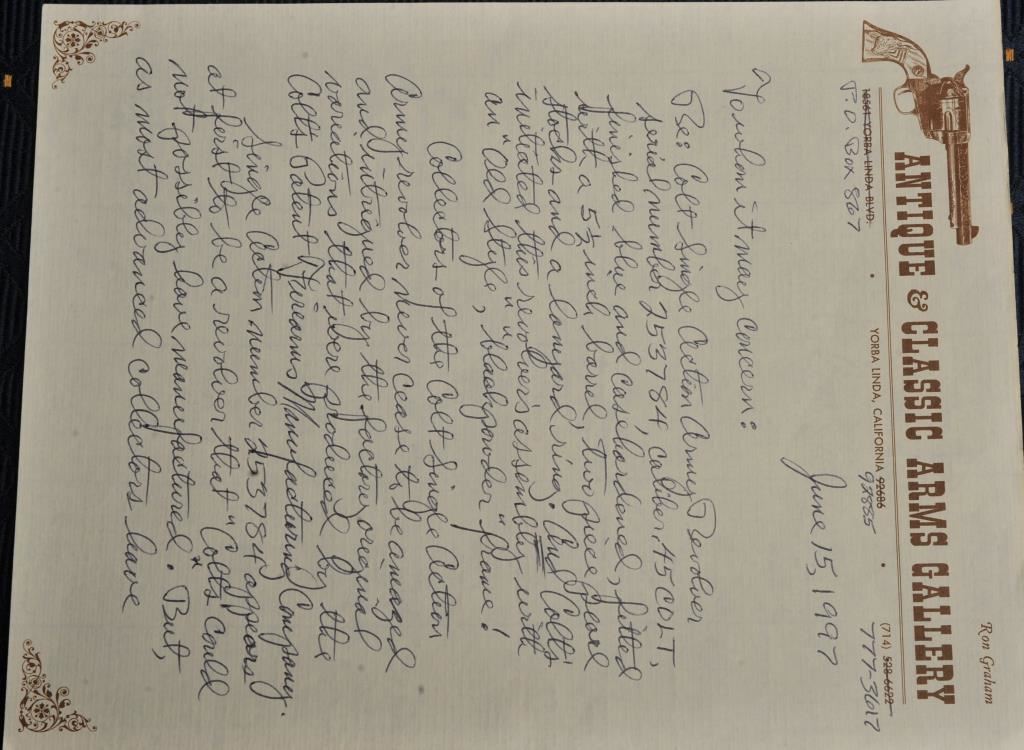 Ron Graham
ANTIQUE & CLASSIC ARMS GALLERY
18561 YORBA LINDA BLVD. • YORBA LINDA, CALIFORNIA 92686 • (714) 528-6622
P.O. Box 867 92885 777-3617
June 15, 1997
To whom it may concern:
Re: Colt Single Action Army Revolver
serial number 253784, caliber .45 COLT,
finished blue and casehardened, fitted
with a 5½ inch barrel, two piece pearl
stocks and a lanyard ring. And Colts'
initiated this revolver's assembly with
an "old style", "blackpowder" frame!
Collectors of the Colt Single Action
Army revolver never cease to be amazed
and intrigued by the factory original
variations that were produced by the
Colts Patent Firearms Manufacturing Company.
Single Action number 253784 appears
at first to be a revolver that "Colts could
not possibly have manufactured". But,
as most advanced collectors have